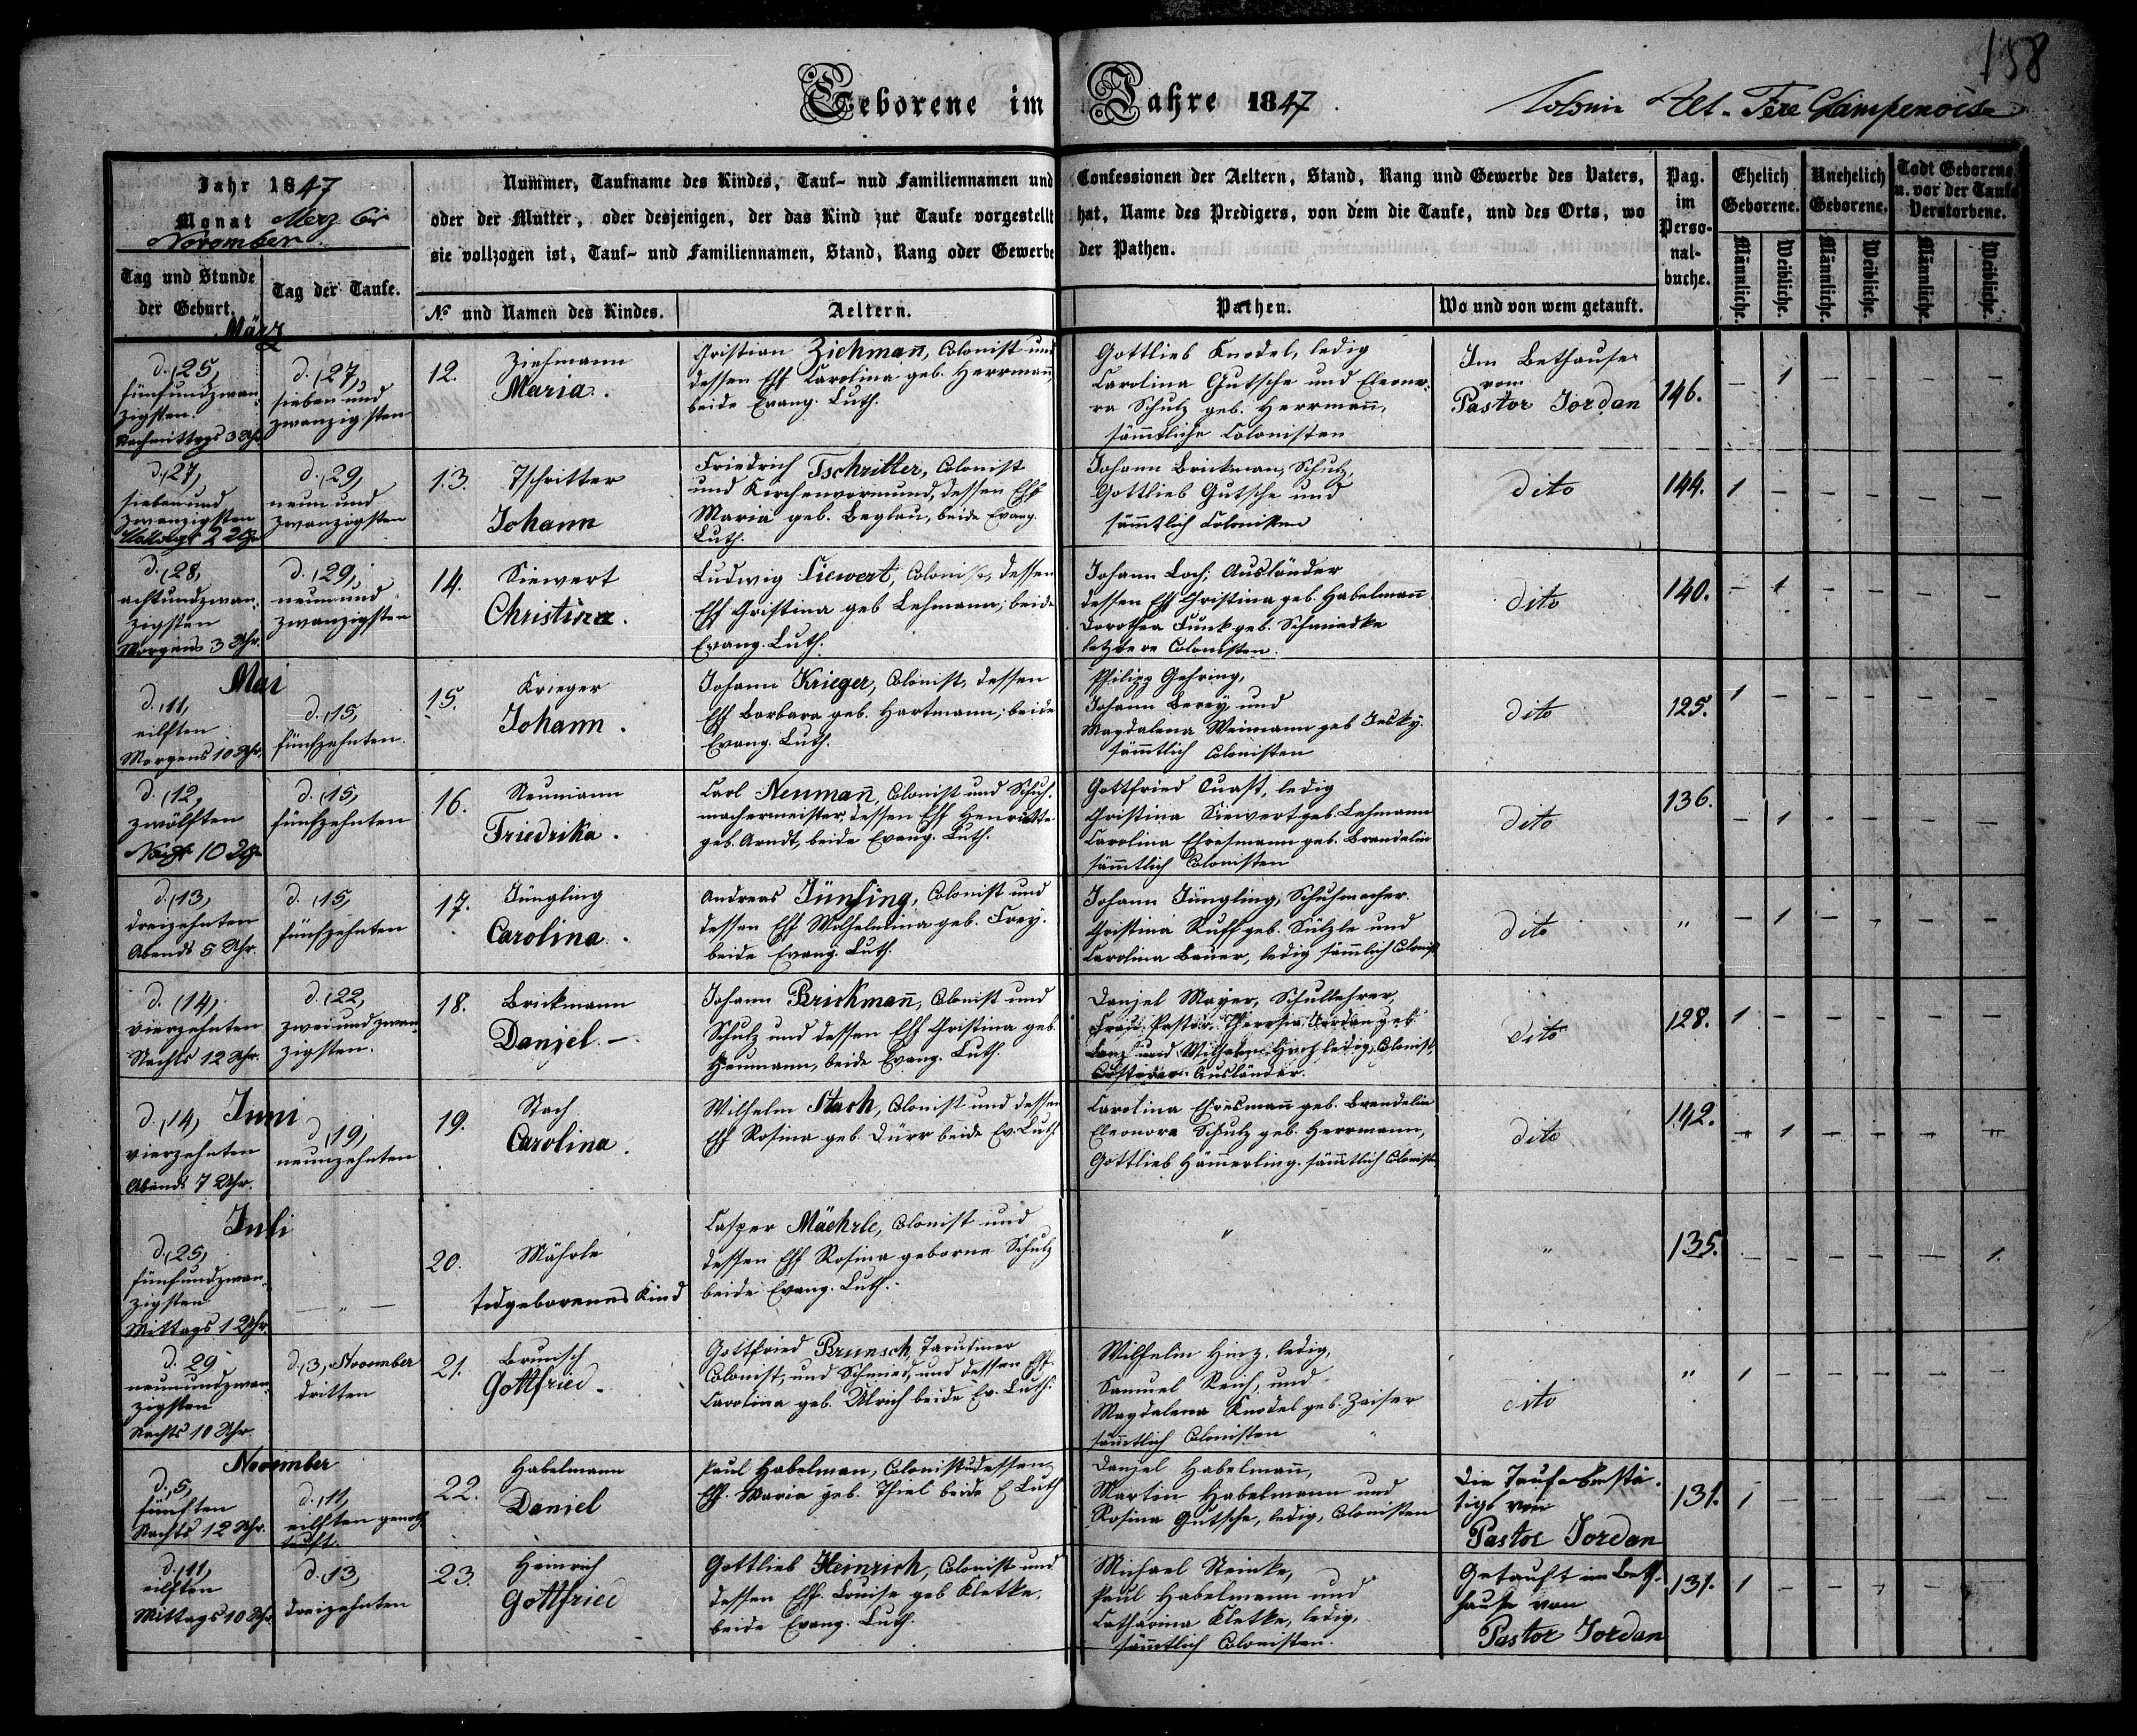 158
Geborene im Jahre 1847.
Colonie Alt-Fere Champenoise
Jahr 1847
Monat Merz bis
November
Nummer, Taufname des Kindes, Tauf- und Familiennamen und
oder der Mutter, oder desjenigen, der das Kind zur Taufe vorgestellt
sie vollzogen ist, Tauf- und Familiennamen, Stand, Rang oder Gewerbe
Confessionen der Aeltern, Stand, Rang und Gewerbe des Vaters,
hat, Name des Predigers, von dem die Taufe, und des Orts, wo
der Pathen.
Pag. im Perso-nal-buche.
Ehelich Geborene.
Unehelich Geborene.
Todt Geborene u. vor der Taufe Verstorbene.
Tag und Stunde der Geburt.
Tag der Taufe.
No und Namen des Kindes.
Aeltern.
Pathen.
Wo und von wem getauft.
Männliche. Weibliche. Männliche. Weibliche. Männliche. Weibliche.
März
d. 25,
fünfundzwan-
zigsten.
Nachmittags 3 Uhr
d. 27,
sieben und
zwanzigsten
12.
Ziehmann
Maria.
Christian Ziehmann, Colonist und
dessen Ehf Carolina geb. Herrmann,
beide Evang. Luth.
Gottlieb Knodel, ledig
Carolina Gutsche und Eleono-
ra Schulz geb. Herrmann,
sämmtliche Colonisten
Im Bethause
vom
Pastor Jordan
146.
– 1 – – – –
d. 27,
sieben und
zwanzigsten
2 Uhr
d. 29,
neun und
zwanzigsten
13.
Tschritter
Johann
Friedrich Tschritter, Colonist
und Kirchenvormund, dessen Ehf
Maria geb. Beglau, beide Evang.
Luth.
Johann Brickman, Schulz,
Gottlieb Gutsche und
sämmtlich Colonisten
dito
144.
1 – – – – –
d. 28,
achtundzwan-
zigsten
Morgens 3 Uhr.
d. 29,
neunund
zwanzigsten
14.
Siewert
Christina.
Ludwig Siewert, Colonist, dessen
Ehf Christina geb Lehmann, beide
Evang. Luth.
Johann Loch, Ausländer
dessen Ehf Christina geb. Habelmann
Dorothea Funk geb. Schmiedke
letztere Colonisten.
dito
140.
– 1 – – – –
Mai
d. 11,
eilften
Morgens 10 Uhr,
d. 15,
fünfzehnten.
15.
Krieger
Johann.
Johann Krieger, Colonist, dessen
Ehf Barbara geb. Hartmann, beide
Evang. Luth.
Philipp Gehring,
Johann Berey und
Magdalena Weimann geb Jesky.
sämtlich Colonisten
dito
125.
1 – – – – –
d. 12,
zwölften
10 Uhr
d. 15,
fünfzehnten
16.
Neumann
Friedrika.
Carl Neumann, Colonist und Schuh-
machermeister, dessen Ehf Henriette
geb. Arndt, beide Evang. Luth.
Gottfried Quast, ledig
Christina Siewert geb. Lehmann
Carolina Ehresmann geb. Brendelin
sämmtlich Colonisten
dito
136.
– 1 – – – –
d. 13,
dreizehnten
Abends 5 Uhr.
d. 15,
fünfzehnten
17.
Jüngling
Carolina.
Andreas Jünling, Colonist und
dessen Ehf Wilhelmina geb. Frey.
beide Evang. Luth.
Johann Jüngling, Schuhmacher.
Christina Ruff geb. Sülzle und
Carolina Bauer, ledig sämmlich Colonist
dito
"
– 1 – – – –
d. 14,
vierzehnten
Nachts 12 Uhr.
d. 22,
zwei und zwan-
zigsten.
18.
Brickmann
Danjel. –
Johann Brickmann, Colonist und
Schulz und dessen Ehf Christina geb.
Heumann, beide Evang. Luth.
Danjel Mayer, Schullehrer,
Frau Pastor Theresia Jordan geb.
Lanz und Wilhelm Hinz ledig, Colonist,
Ausländer.
dito
128.
1 – – – – –
Juni
d. 14,
vierzehnten
Abends 7 Uhr.
d. 19,
neunzehnten
19.
Stach
Carolina.
Wilhelm Stach, Colonist und dessen
Ehf Rosina geb. Dürr beide Ev. Luth
Carolina Ehresmann geb. Brendelin
Eleonora Schulz geb. Herrmann,
Gottlieb Hämmerling. sämtlich Colonist
dito
142.
– 1 – – – –
Juli
d. 25,
fünfundzwan-
zigsten
Mittags 12 Uhr
– " –
20.
Mährle
todgeborenes Kind
Casper Maehrle, Colonist und
dessen Ehf Rosina geborne Schulz
beide Evang. Luth.
"
"
135.
– – – – – 1.
d. 29
neunundzwan-
zigsten
Nachts 10 Uhr.
d. 3, November
dritten
21.
Brunsch
Gottfried.
Gottfried Brunsch, Tarutiner
Colonist, und Schmied, und dessen Ehf.
Carolina geb. Ulrich beide Ev. Luth.
Wilhelm Hinz, ledig,
Samuel Reich, und
Magdalena Knodel geb. Zaiser
sämmtlich Colonisten
dito
"
1 – – – – –
November
d. 5,
fünften
Nachts 12 Uhr.
d. 11,
eilften
22.
Habelmann
Daniel
Paul Habelman, Colonist u dessen
Ehf. Maria geb. Thiel beide E. Luth
Danjel Habelmann,
Martin Habelmann und
Rosina Gutsche, ledig, Colonisten
Die Taufe bestä-
tigt von
Pastor Jordan
131.
1 – – – – –
d. 11,
eilften
Mittags 10 Uhr.
d. 13,
dreizehnten
23.
Heinrich
Gottfried
Gottlieb Heinrich, Colonist und
dessen Ehf. Louise geb Kletke,
beide Evang. Luth.
Michael Steinke,
Paul Habelmann und
Catharina Kletke, ledig,
sämtlich Colonisten.
Getauft im Bet-
hause von
Pastor Jordan
131.
1 – – – – –